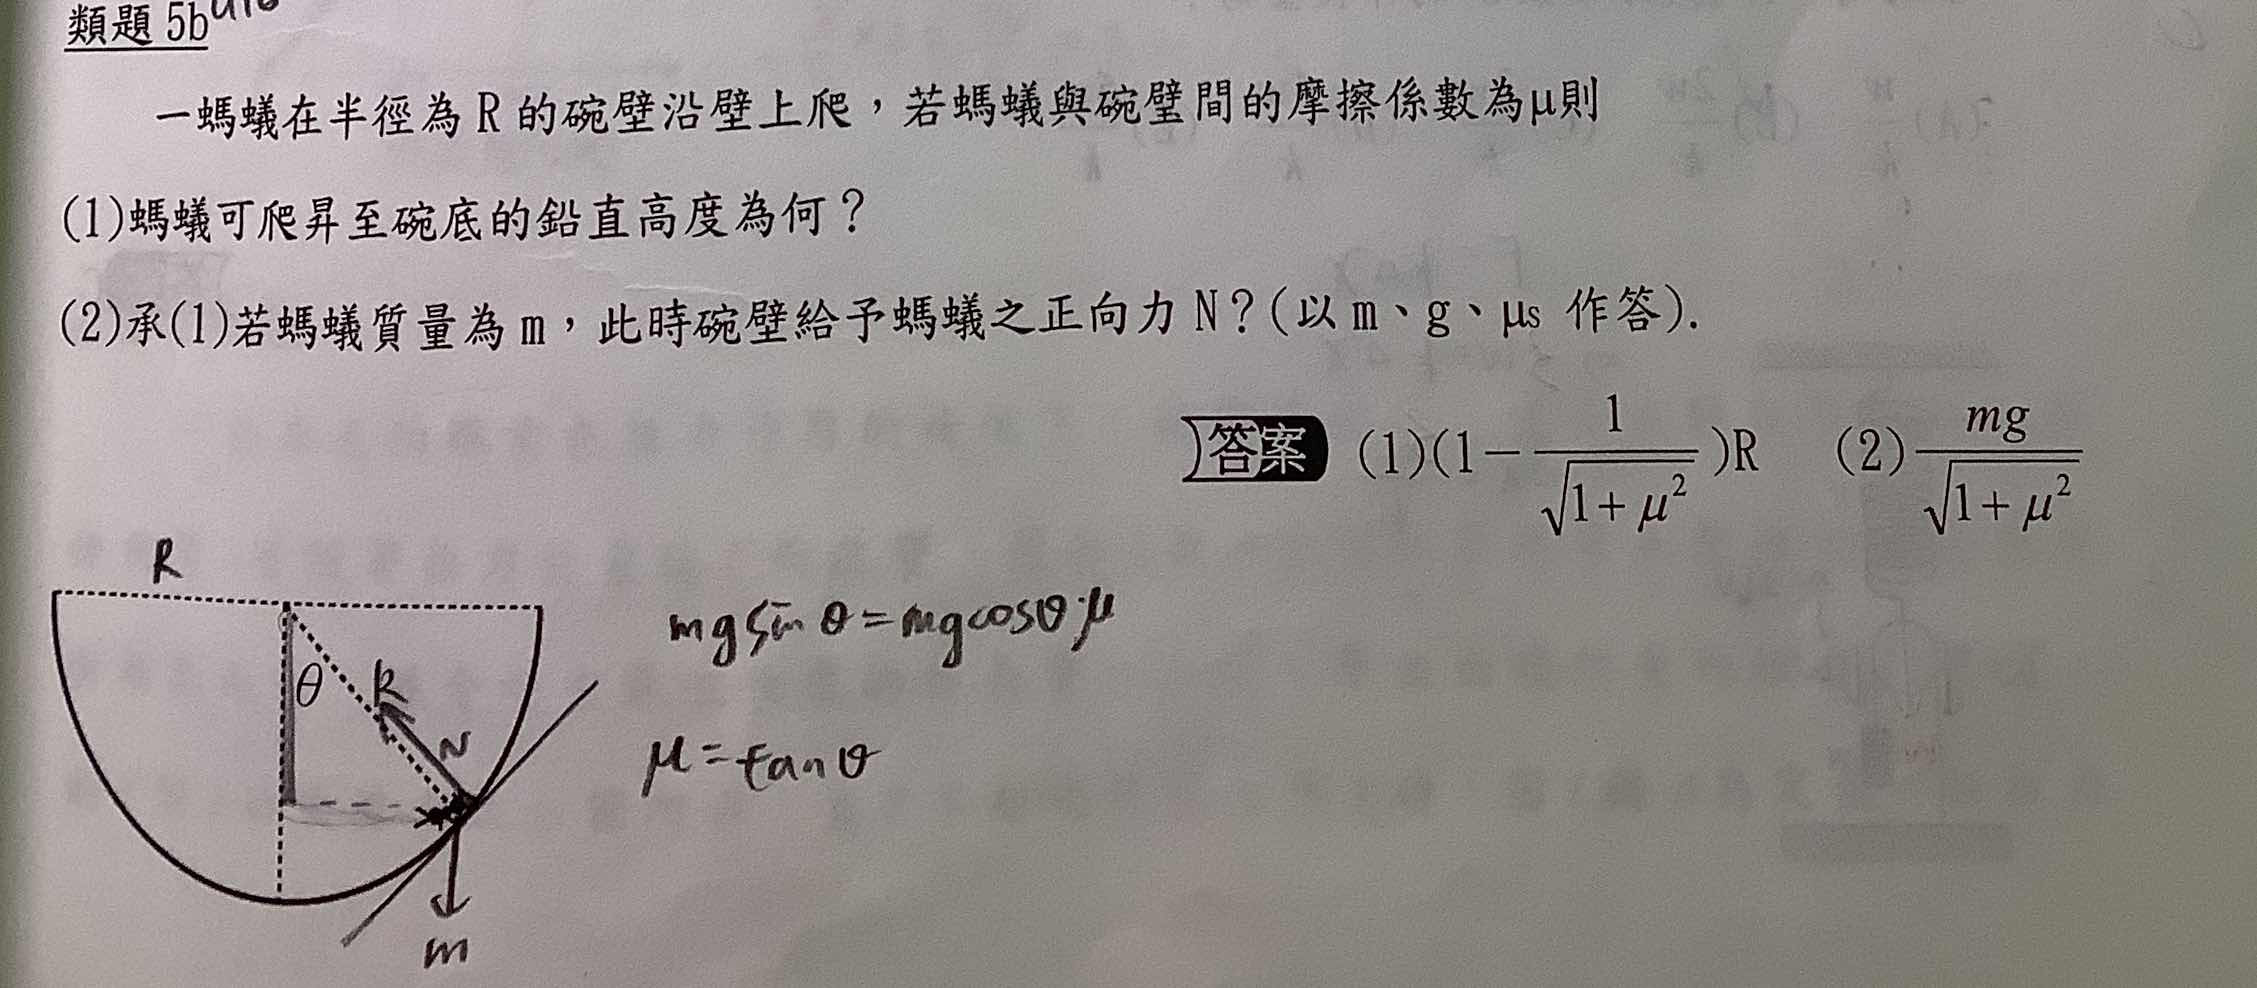 類題 5b
一螞蟻在半徑為 R 的碗壁沿壁上爬，若螞蟻與碗壁間的摩擦係數為μ則
(1)螞蟻可爬昇至碗底的鉛直高度為何？
(2)承(1)若螞蟻質量為 m，此時碗壁給予螞蟻之正向力 N？(以 m、g、μs 作答).
答案 (1)(1-\frac{1}{\sqrt{1+μ^2}})R (2)\frac{mg}{\sqrt{1+μ^2}}
R
mg sin θ = mg cos θ · μ
θ R
N
μ = tan θ
m